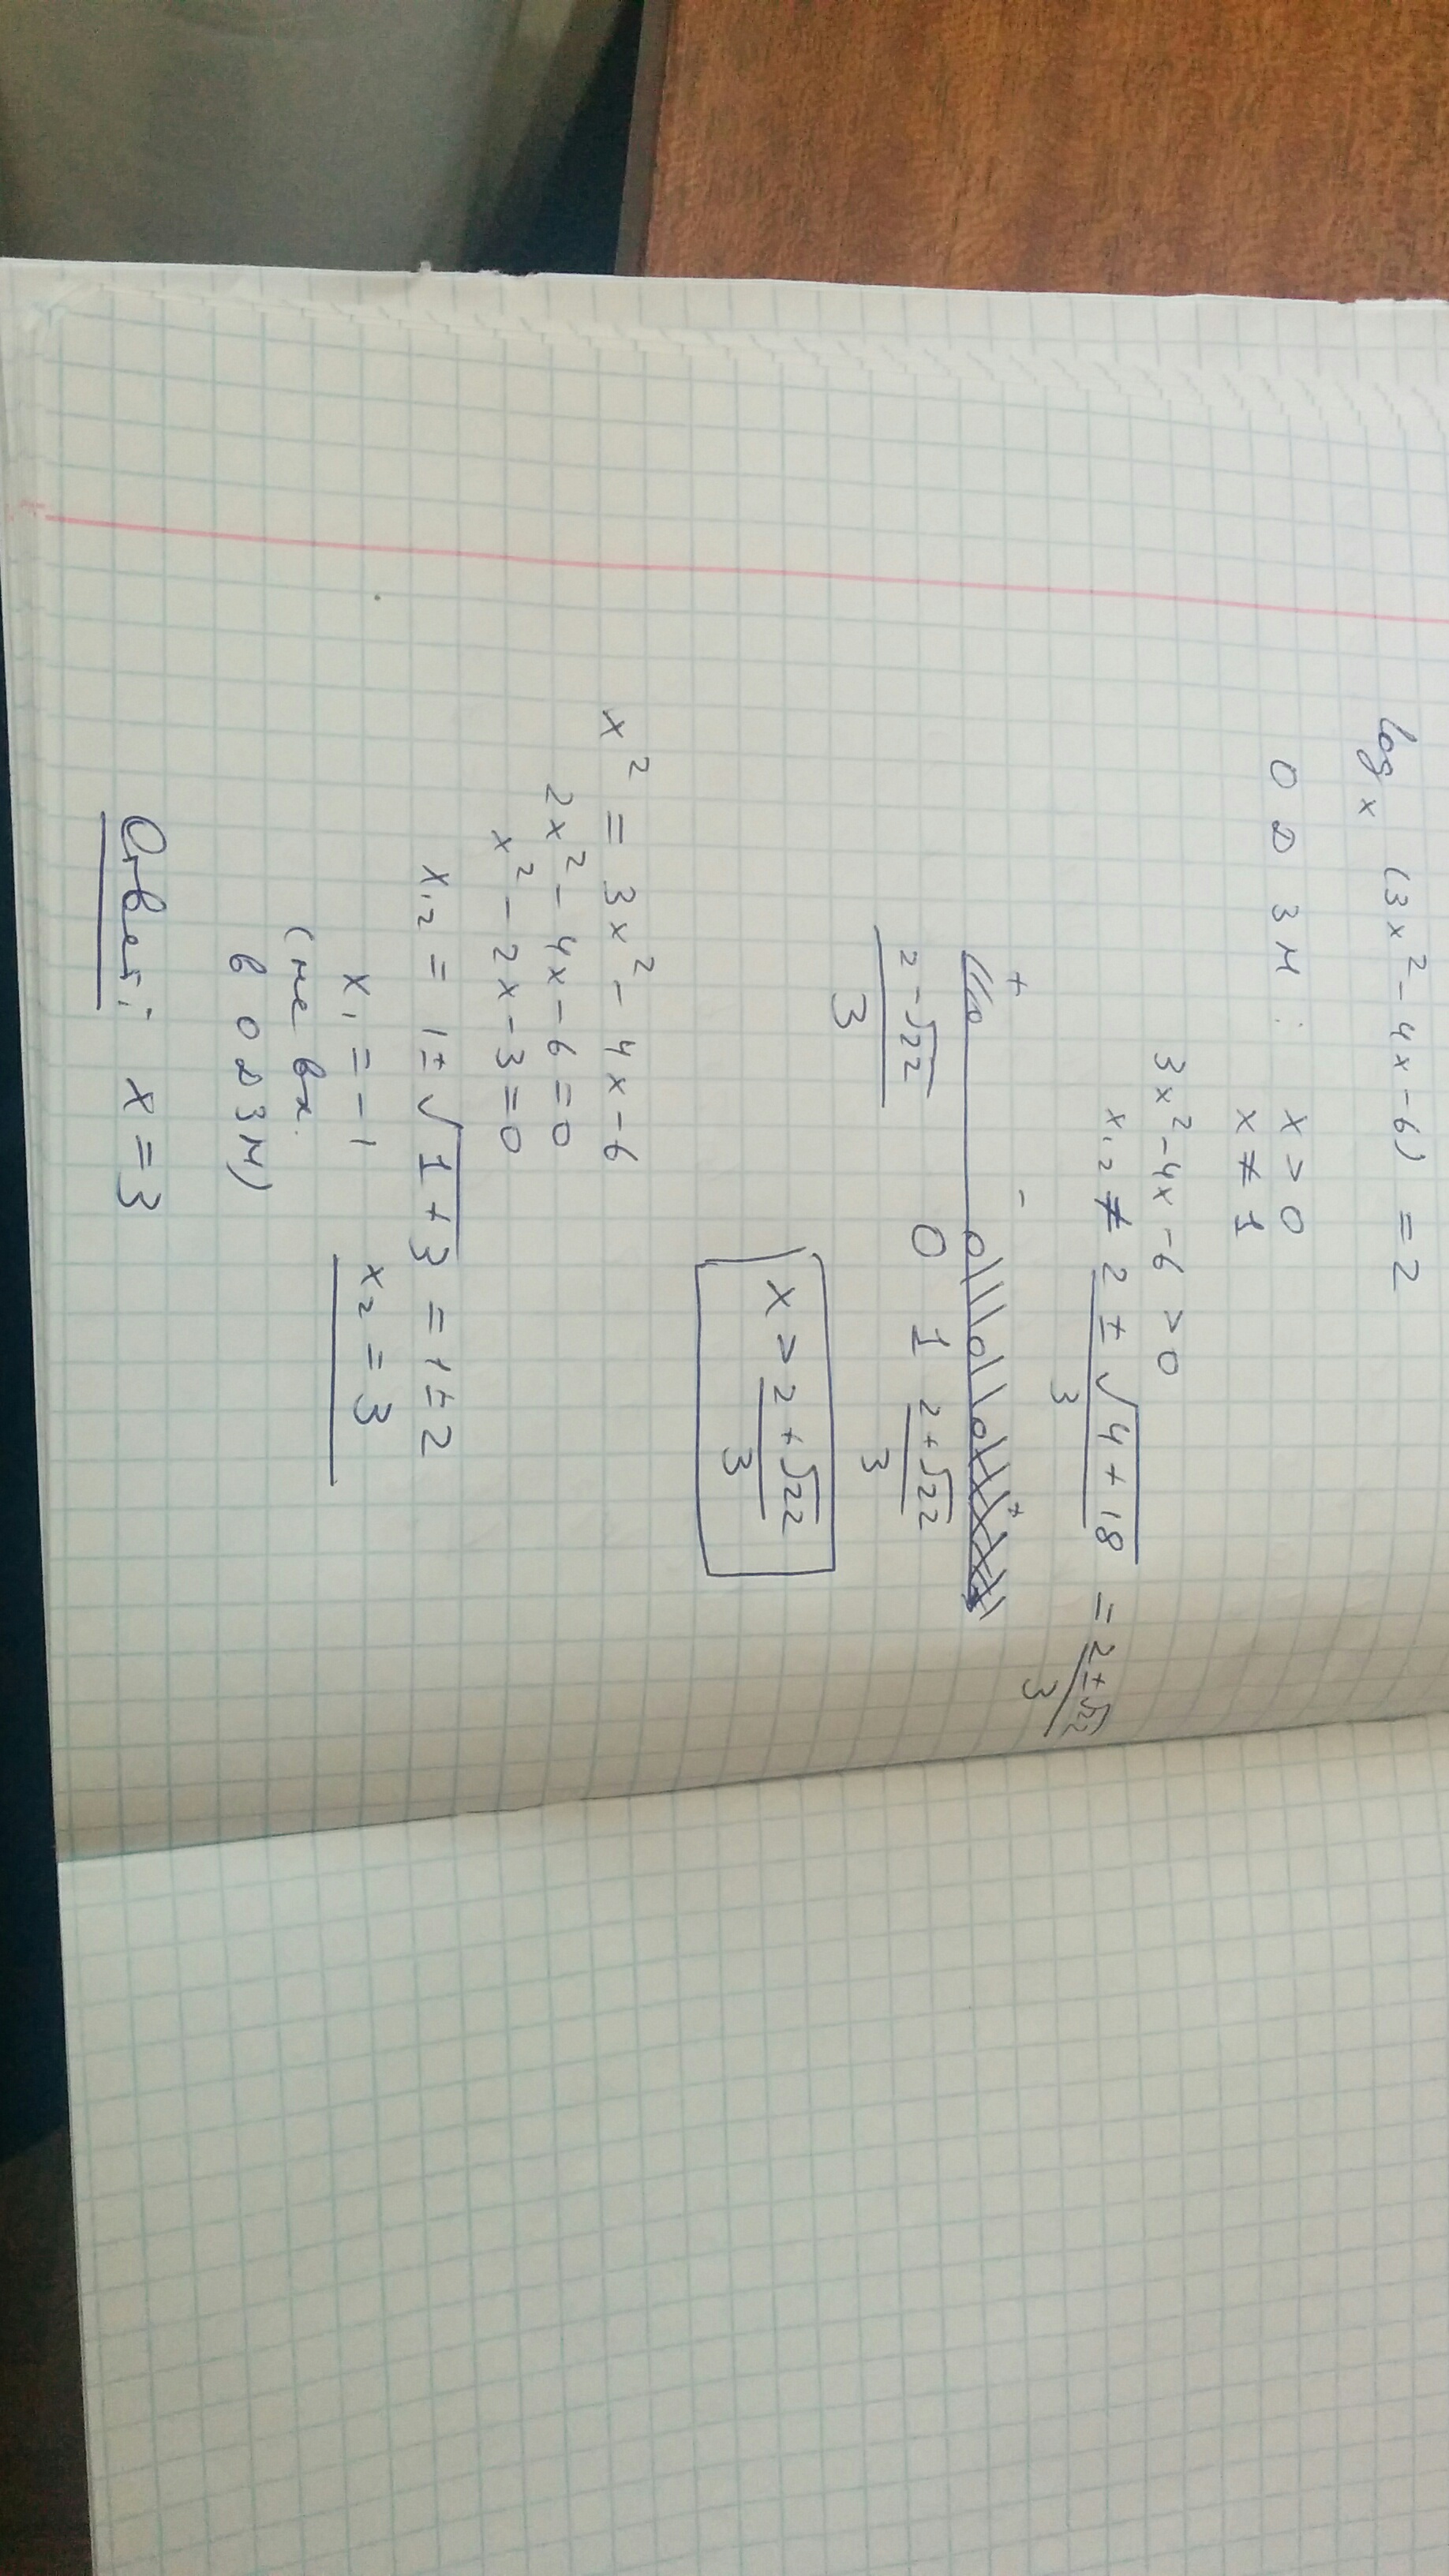 log x (3x² - 4x - 6) = 2
ОДЗМ: x > 0
x ≠ 1
3x² - 4x - 6 > 0
x₁,₂ ≠ 2 ± √4 + 18 / 3 = 2 ± √22 / 3
+ - +
2 - √22 / 3 0 1 2 + √22 / 3
x > 2 + √22 / 3
x² = 3x² - 4x - 6
2x² - 4x - 6 = 0
x² - 2x - 3 = 0
x₁,₂ = 1 ± √1 + 3 = 1 ± 2
x₁ = -1 x₂ = 3
(не вх.
в ОДЗМ)
Ответ: x = 3